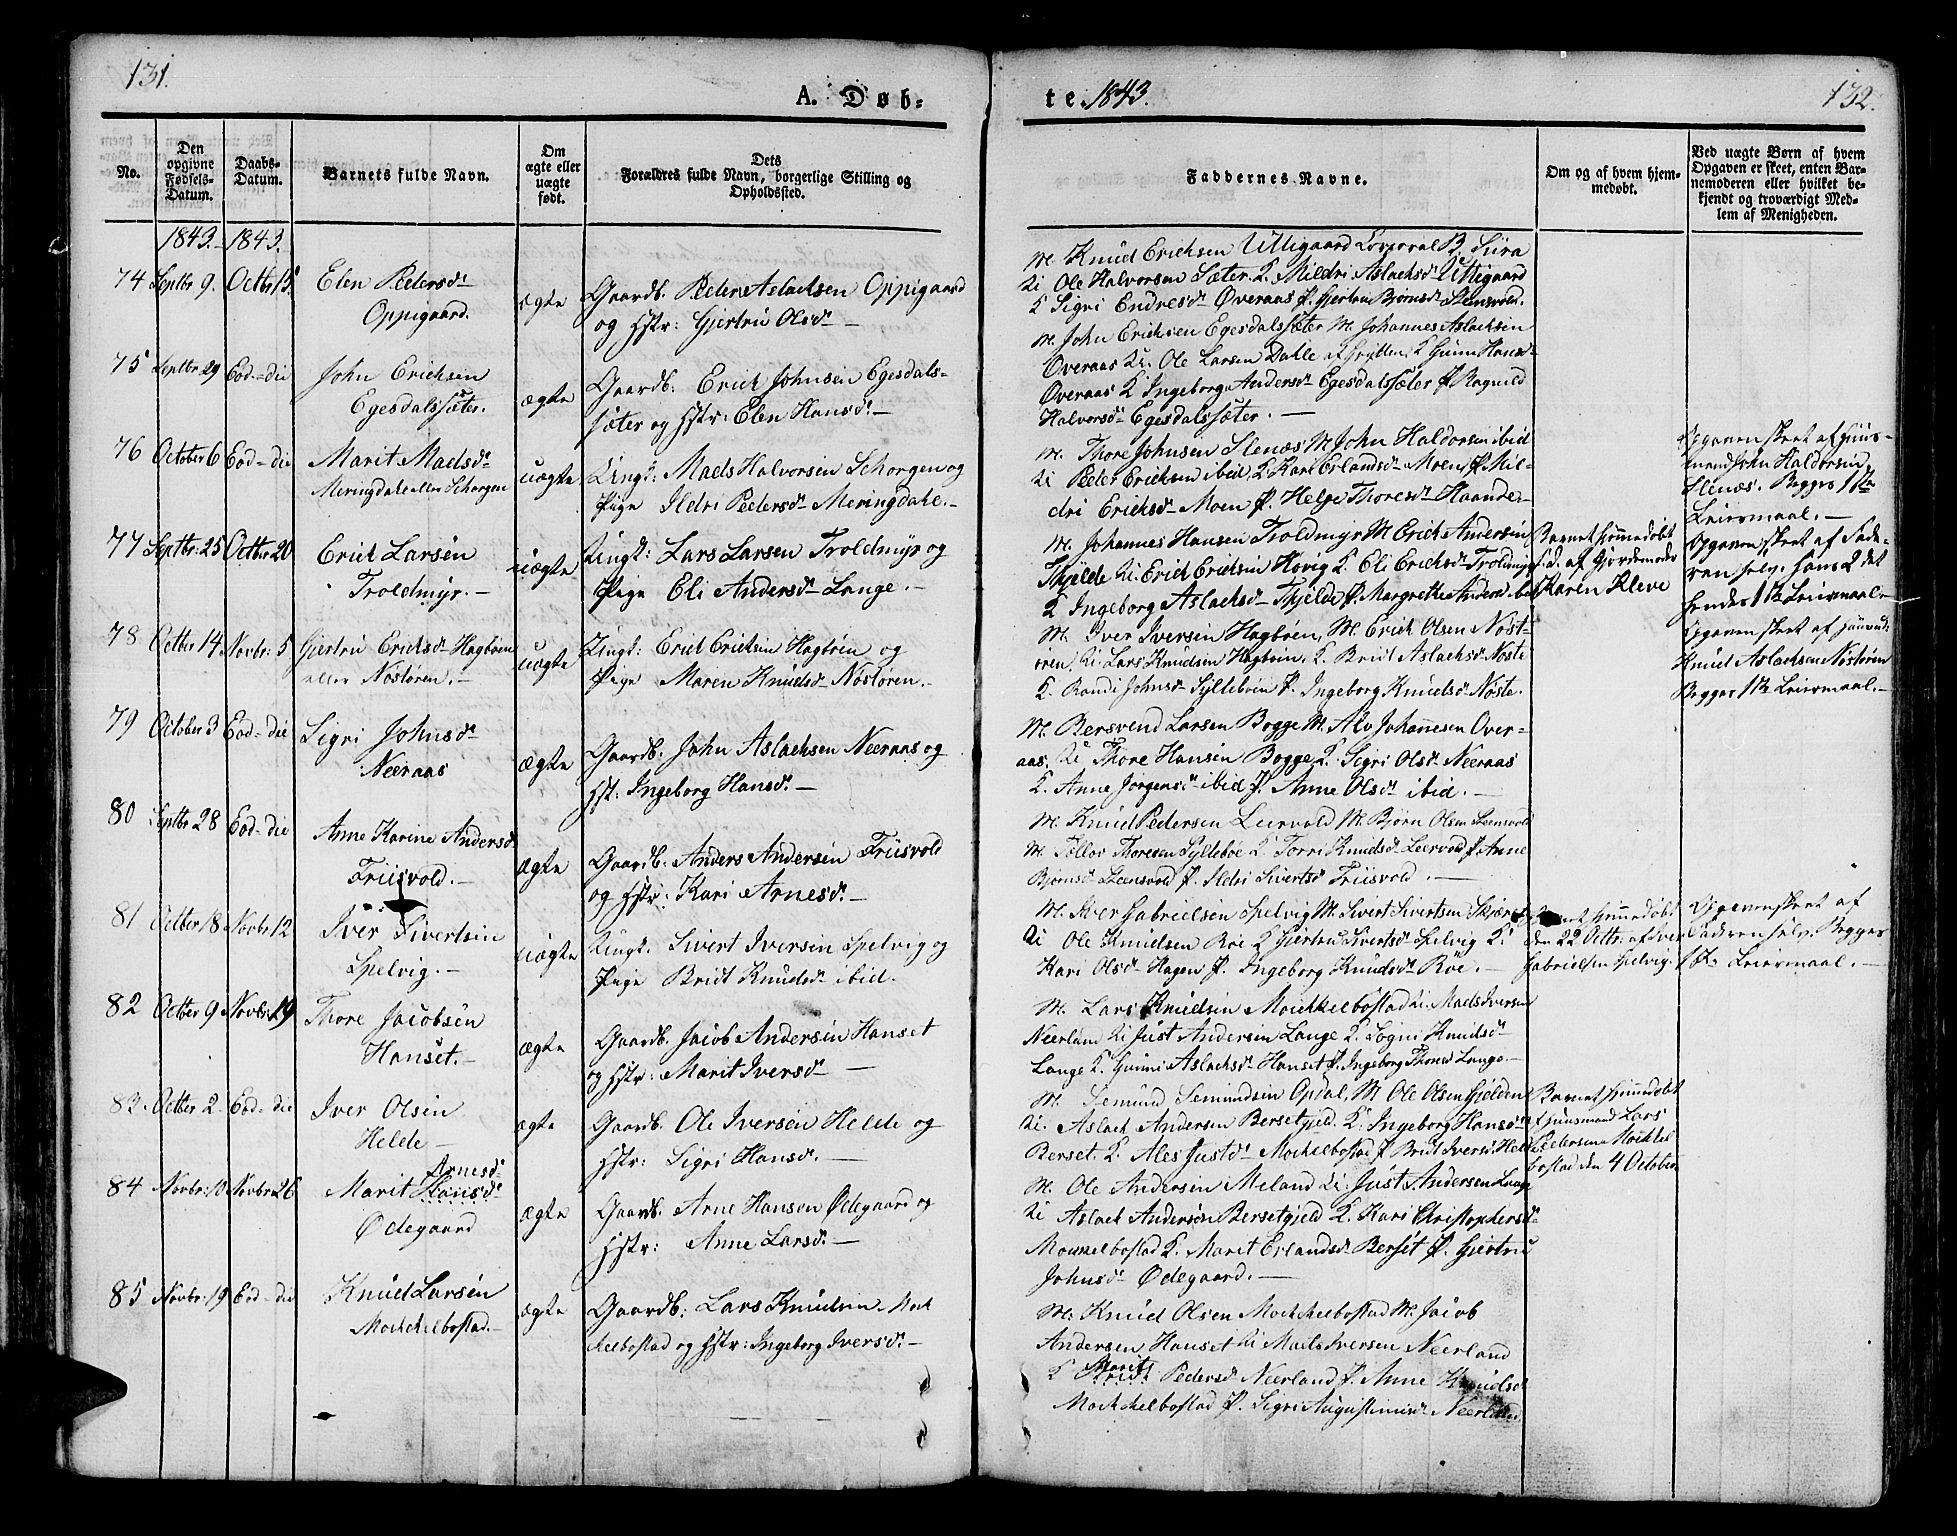 131.
A. Døb-
te 1843.
132.
No.
Den opgivne Fødsels-Datum.
Daabs-Datum.
Barnets fulde Navn.
Om ægte eller uægte født.
Dets Forældres fulde Navn, borgerlige Stilling og Opholdssted.
Faddernes Navne.
Om og af hvem hjem-
medøbt.
Ved uægte Børn af hvem
Opgaven er skeet, enten Bar-
nemoderen eller hvilket be-
kjendt og troværdigt Med-
lem af Menigheden.
1843. 1843.
74 Septbr 9. Octbr 15.
Elen Pedersd.
Oppigaard.
ægte
Gaardb. Peder Aslachsen Oppigaard
og Hstr: Gjertru Olsd. —
M. Knud Erichsen Uttigaard Corporal B. Siira
Ti Ole Halvorsen Sæter. K. Mildri Aslachsd. Uttigaard
K Sigri Endresd. Øveraas P. Gjertru Bjørnsd. Steensvold.
75 Septbr 29 Eod-die
John Erichsen
Egesdalssæter.
ægte
Gaardb. Erich Johnsen Egesdals-
sæter og Hstr: Elen Hansd. —
M. John Erichsen Egesdalssæter M. Johannes Aslachsen
Overaas Ti. Ole Larsen Dahle af Grytten. K Gunn Hansd.
Overaas K Ingeborg Andersd. Egesdalssæter P. Ragnild
Halvorsd. Egesdalssæter. —
76 October 6 Eod-die
Marit Madsd.
Meringdahl eller Schorgen
uægte
Ungk: Mads Halvorsen Schorgen og
Pige Ildri Pedersd. Meringdahl. —
M. Thore Johnsen Slenæs M. John Haldorsen ibid
Ti Peder Erichsen ibid. K Kari Erlandsd. Moen P. Mil-
dri Erichsd. Moen P. Helge Thoresd. Haande. —
Opgaven skeet af Huus-
mand John Haldorsen
Slenæs. Begges 1ste
Leiermaal. —
77 Septbr. 25 Octbr 20
Erich Larsen
Troldmyr. —
uægte
Ungk: Lars Larsen Troldmyr og
Pige Eli Andersd. Lange. —
M. Johannes Hansen Troldmyr M Erich Andersen
Thjelde Ti. Erich Erichsen Hovig K. Eli Erichsd. Troldmyr
K Ingeborg Aslachsd. Thjelde P. Margrethe Andersd. ibid
Barnet hjemmedøbt
s. D. af Gjordemoder
Karen Kleve
Opgaven skeet af Fade-
ren selv. Hans 2det
hendes 1ste Leiermaal. —
78 Octbr 14 Novbr: 5
Gjertru Erichsd. Hagbøen
eller Nøstøren. —
uægte
Ungk: Erich Erichsen Hagbøen og
Pige Maren Knudsd. Nøstøren. —
M. Iver Iversen Hagbøen, M. Erich Olsen Nøst-
øren, Ti Lars Knudsen Hagbøen, K. Bridt Aslachsd. Nøste
K. Randi Johnsd. Syltebøen P. Ingeborg Knudsd. Nøste.
Opgaven skeet af
Knud Aslachsen Nøstøren
Begges 1ste Leiermaal. —
79 October 3 Eod-die
Sigri Johnsd.
Neeraas
ægte
Gaardb. John Aslachsen Neeraas og
Hst: Ingeborg Hansd. —
M. Bersvend Larsen Bogge M. Alv Johannesen Over-
aas. Ti Thore Hansen Bogge K. Sigri Olsd. Neeraas
K. Anne Jørgensd. ibid P. Anne Olsd. ibid. —
80 Septbr 28 Eod-die
Anne Karine Andersd
Friisvold. —
ægte
Gaardb. Anders Andersen Friisvold
og Hstr: Kari Arnesd. —
M. Knud Pedersen Leervold M. Bjørn Olsen Steensvold
M. Tollov Thoresen Syltebøe K. Torri Knudsd. Leervold P. Anne
Bjørnsd. Steensvold P. Ildri Sivertsd Friisvold. —
81 Octbr 18 Novbr 12
Iver Sivertsen
Spelvig. —
uægte
Ungk: Sivert Iversen Spelvig og
Pige Bridt Knudsd. ibid.
M. Iver Gabrielsen Spelvig M. Sivert Sivertsen
Ti Ole Knudsen Røe K Gjertru Sivertsd. Spelvig K:
Kari Olsd. Hagen P. Ingeborg Knudsd. Røe. —
hjemmedøbt
den 22 Octbr. af Iver
Gabrielsen Spelvig.
Opgaven skeet af
Faderen selv. Begges
1ste Leiermaal. —
82 Octbr 9 Novbr: 19
Thore Jacobsen
Hanset. —
ægte
Gaardb. Jacob Andersen Hanset
og Hstr: Marit Iversd. —
M. Lars Knudsen Mochkelbostad Ti. Mads Iversen
Neerland Ti Just Andersen Lange K. Sogni Knudsd.
Lange K. Gunni Aslachsd. Hanset P. Ingeborg Thoresd Lange —
83. Octbr 2. Eod-die
Iver Olsen
Helde —
ægte
Gaardb. Ole Iversen Helde og
Hstr: Sigri Hansd. —
M. Semund Semundsen Opdal, M Ole Olsen Gjelden
Ti. Aslach Andersen Bersetgjeld. K. Ingeborg Hansd.
Berset. K. Ales Justsd. Mochelbostad P Bridt Iversd. Helde
Barnet hjemmedøbt
af Huusmand Lars
Pedersen Mochel
bostad den 4 October
84 Novbr: 10 Novbr 26
Arnesd.
Marit Hansd.
Ødegaard
ægte
Gaardb. Arne Hansen Ødegaard og
Hstr: Anne Larsd. —
M. Ole Andersen Meland Ti. Just Andersen Lange
Ti Aslach Andersen Bersetgjeld K. Kari Christophersd.
Mochelbostad K. Marit Erlandsd. Berset P. Gjertru
Johnsd. Ødegaard. —
85 Novbr: 19 Eod-die
Knud Larsen
Mochkelbostad. —
ægte
Gaardb. Lars Knudsen. Moch
kelbostad og Hstr: Ingeborg Iversd. —
M. Knud Olsen Mochkelbostad M. Jacob
Andersen Hanset Ti Mads Iversen Neerland
K Marit Pedersd. Neerland P. Anne Knudsd
Mochkelbostad P. Sigri Augustinusd. Neerland